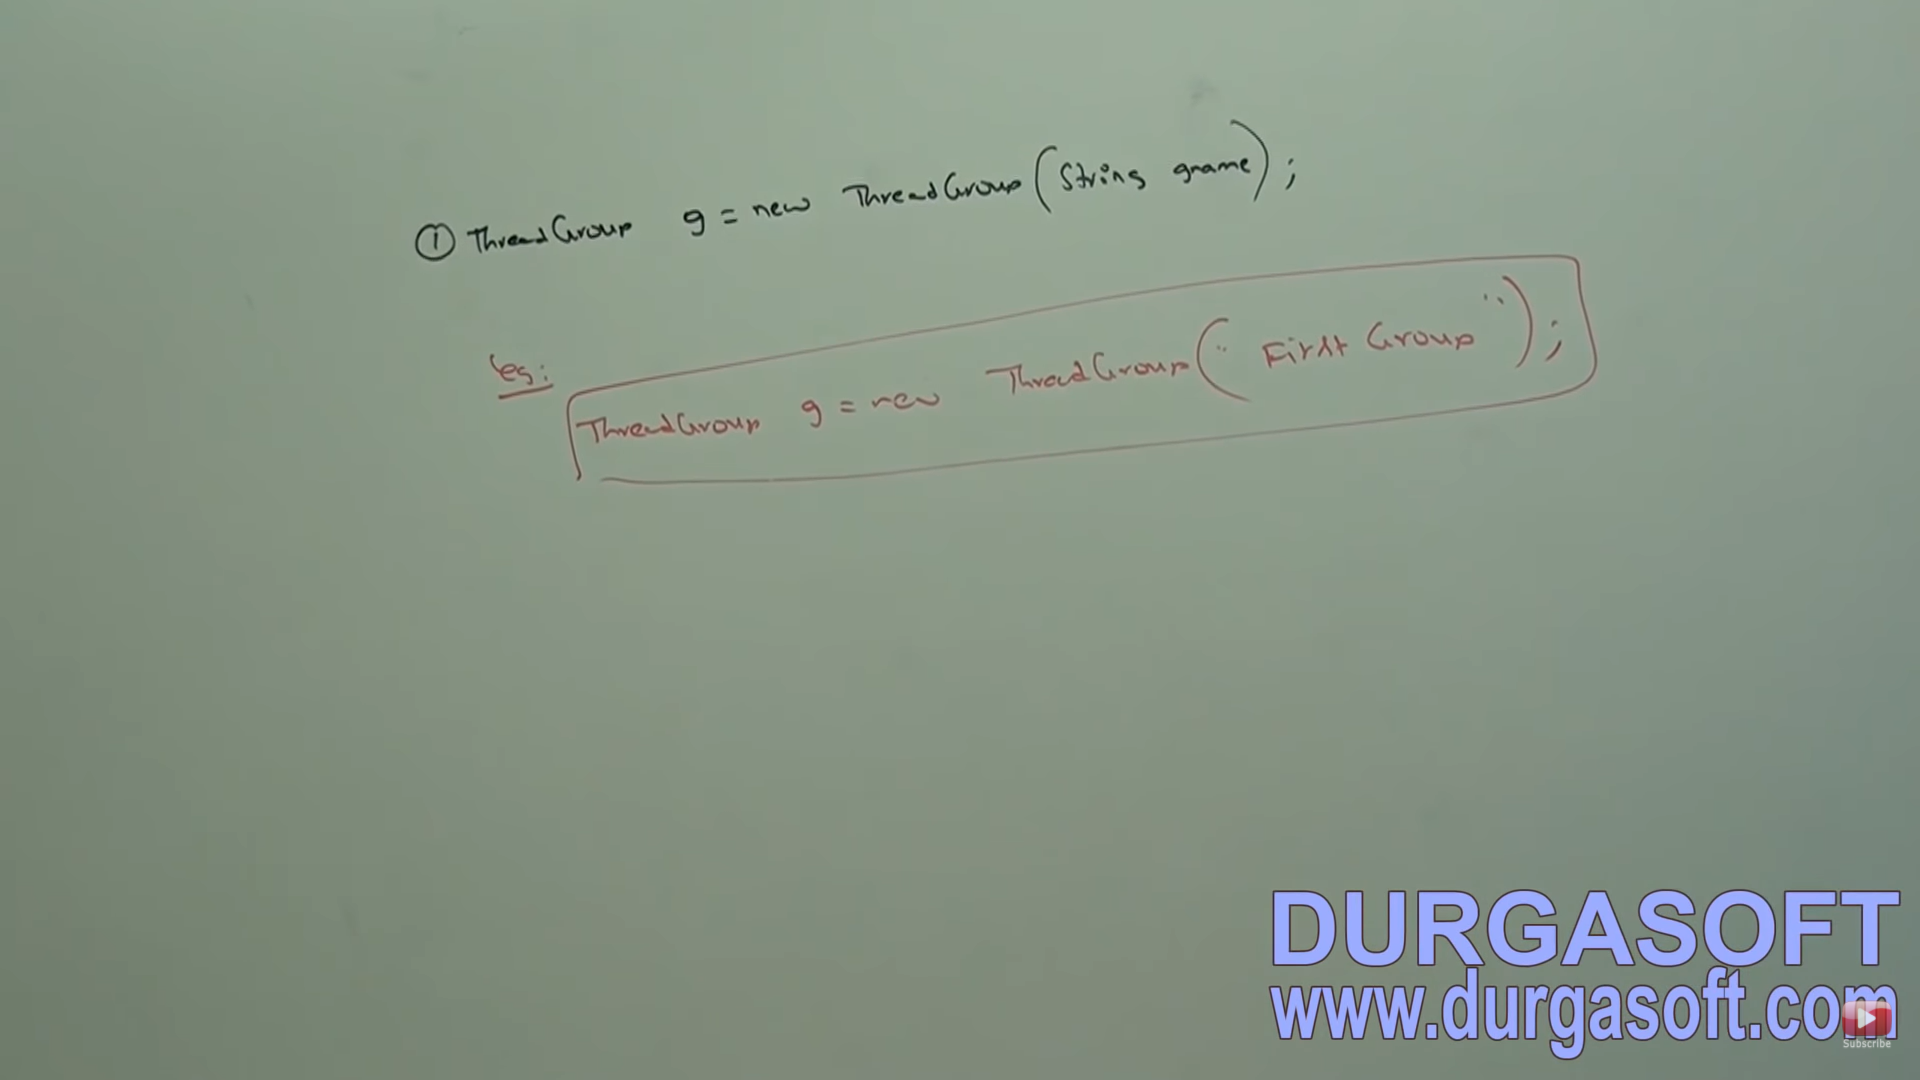 ① ThreadGroup g = new ThreadGroup(String gname);
eg:
ThreadGroup g = new ThreadGroup("First Group");
DURGASOFT
www.durgasoft.com
Subscribe